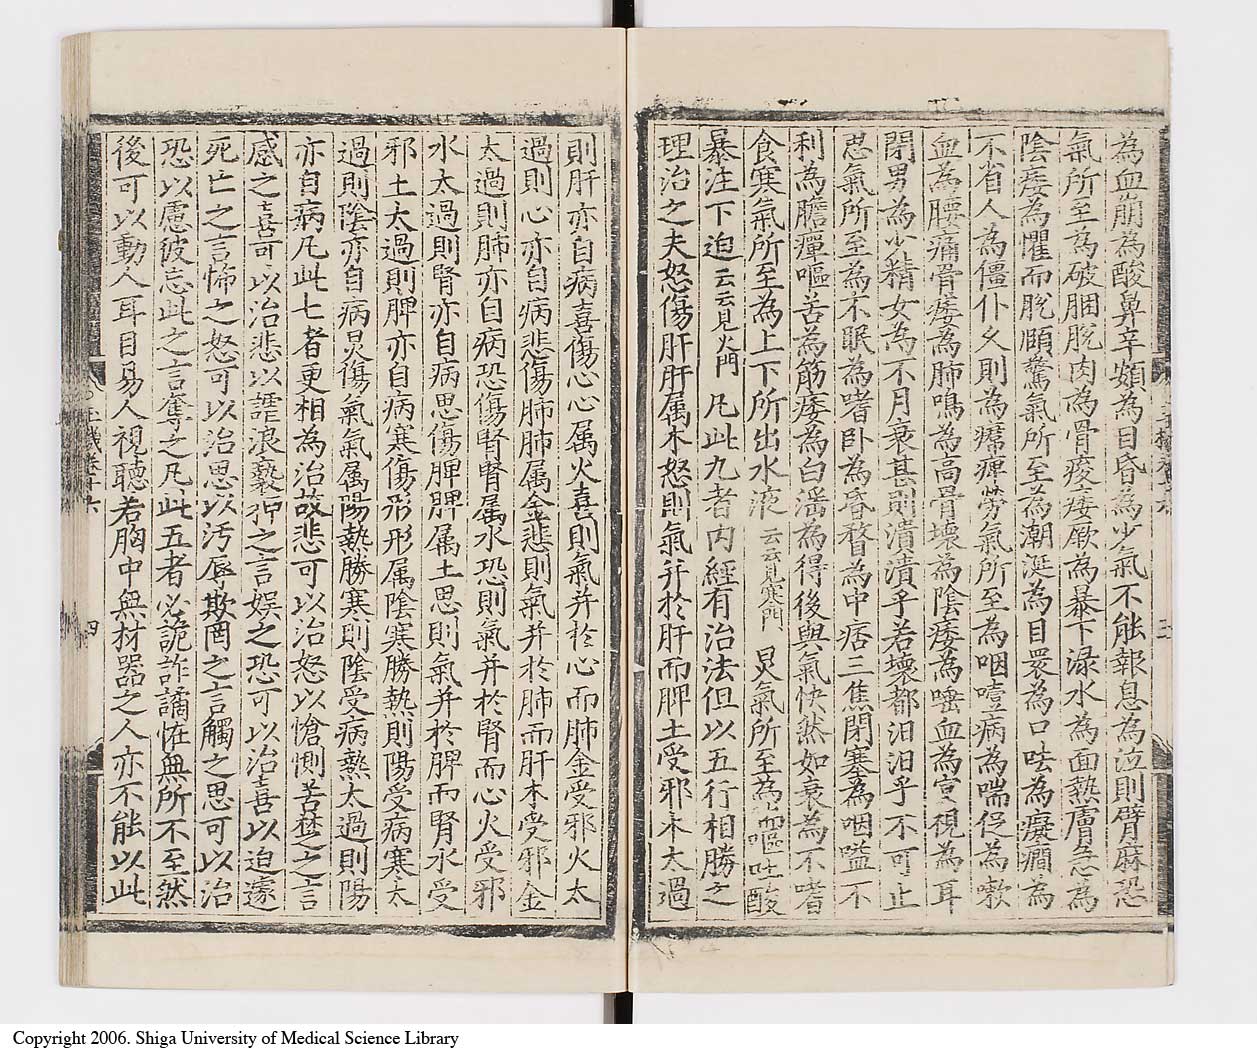 為血崩為酸鼻辛頞為目昏為少氣不能報息為泣則臂麻恐
氣所至為破䐃脫肉為骨痠痿厥為暴下淥水為面熱膚急為
陰痿為懼而脫頤驚氣所至為潮涎為目睘為口呿為癡癎為
不省人為僵仆久則為𤸷痺勞氣所至為咽噎病為喘促為嗽
血為腰痛骨痿為肺鳴為高骨壞為陰痿為唾血為㝠視為耳
閉男為少精女為不月衰甚則潰潰乎若壞都汩汩乎不可止
思氣所至為不眠為嗜卧為昏瞀為中痞三焦閉塞為咽嗌不
利為膽癉嘔苦為筋痿為白淫為得後與氣快然如衰為不嗜
食寒氣所至為上下所出水液 云云見寒門 炅氣所至為嘔吐酸
暴注下迫 云云見火門 凡此九者内經有治法但以五行相勝之
理治之夫怒傷肝肝属木怒則氣并於肝而脾土受邪木太過
則肝亦自病喜傷心心属火喜則氣并於心而肺金受邪火太
過則心亦自病悲傷肺肺属金悲則氣并於肺而肝木受邪金
太過則肺亦自病恐傷腎腎属水恐則氣并於腎而心火受邪
水太過則腎亦自病思傷脾脾属土思則氣并於脾而腎水受
邪土太過則脾亦自病寒傷形形属陰寒勝熱則陽受病寒太
過則陰亦自病炅傷氣氣属陽熱勝寒則陰受病熱太過則陽
亦自病凡此七者更相為治故悲可以治怒以愴惻苦楚之言
感之喜可以治悲以謔浪䙝狎之言娛之恐可以治喜以迫遽
死亡之言怖之怒可以治思以汚辱欺罔之言觸之思可以治
恐以慮彼忘此之言奪之凡此五者必詭詐譎恠無所不至然
後可以動人耳目易人視聽若胸中無材器之人亦不能以此
四